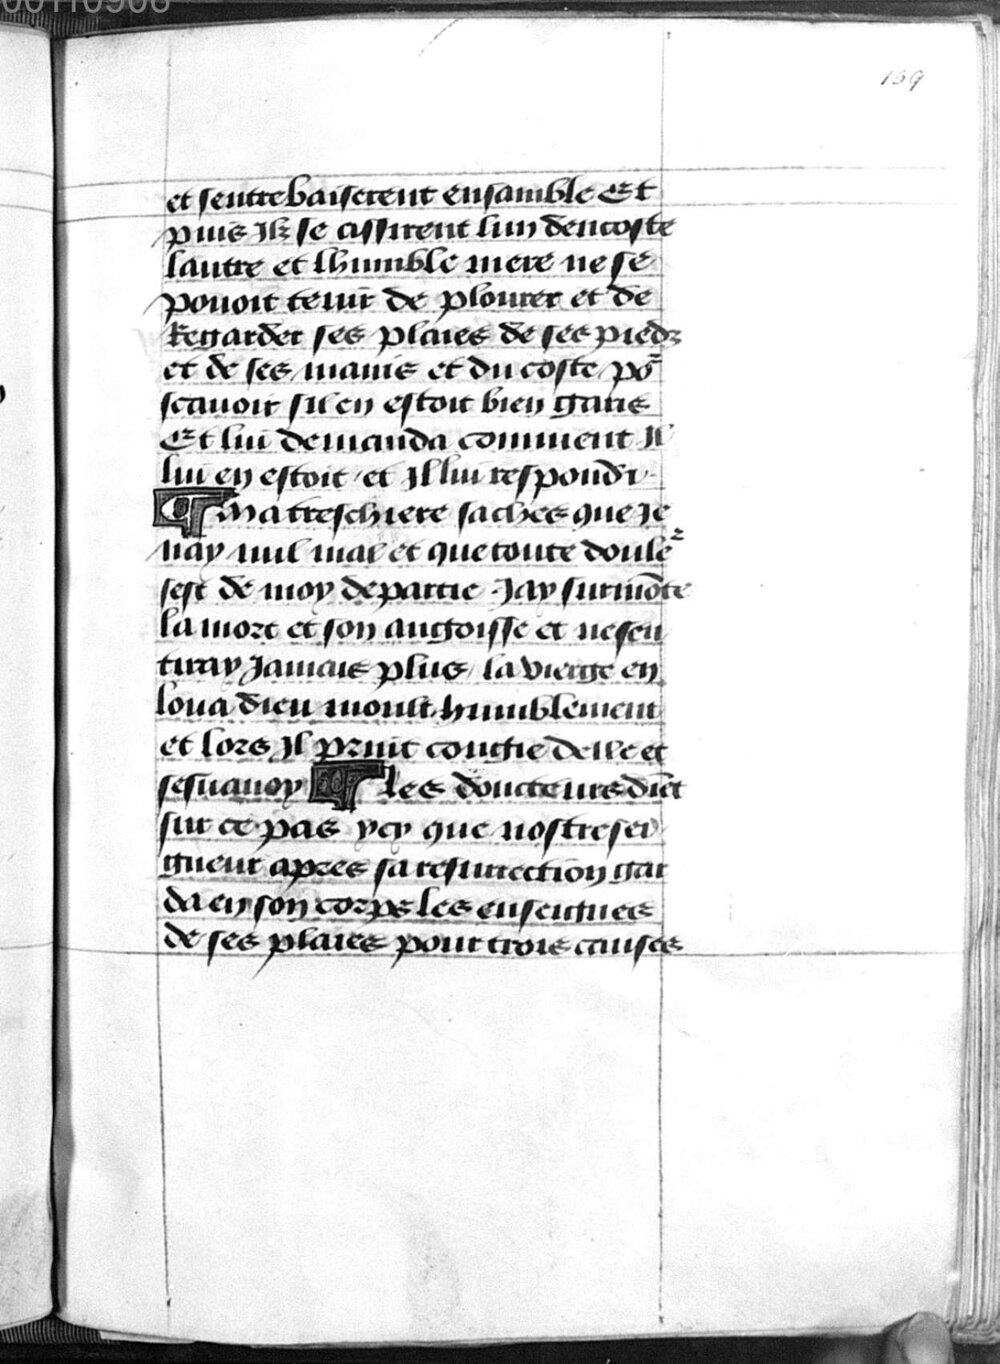 159
et sentrebaiserent ensamble Et
puis Ilz se assirent lun dencoste
lautre et lhumble mere ne se
pouoit tenir de plourer et de
Regarder ses plaies de ses piedz
et de ses mains et du coste / po᷑
scauoir sil en estoit bien garis
Et lui demanda comment Il
lui en estoit / et Il lui respondi ·
¶ Ma treschiere saches que Je
nay nul mal et que toute doule᷑
sest de moy departie · Jay surmōte
la mort et son angoisse et ne sen
tiray Jamais plus / la vierge en
loua dieu moult humblement
et lors Il print congie delle et
sesuanoy ¶ les doucteurs diēt
sur ce pas ycy que nostre sei
gneur apres sa resurrection gar
da en son corps les enseignes
de ses plaies pour trois causes